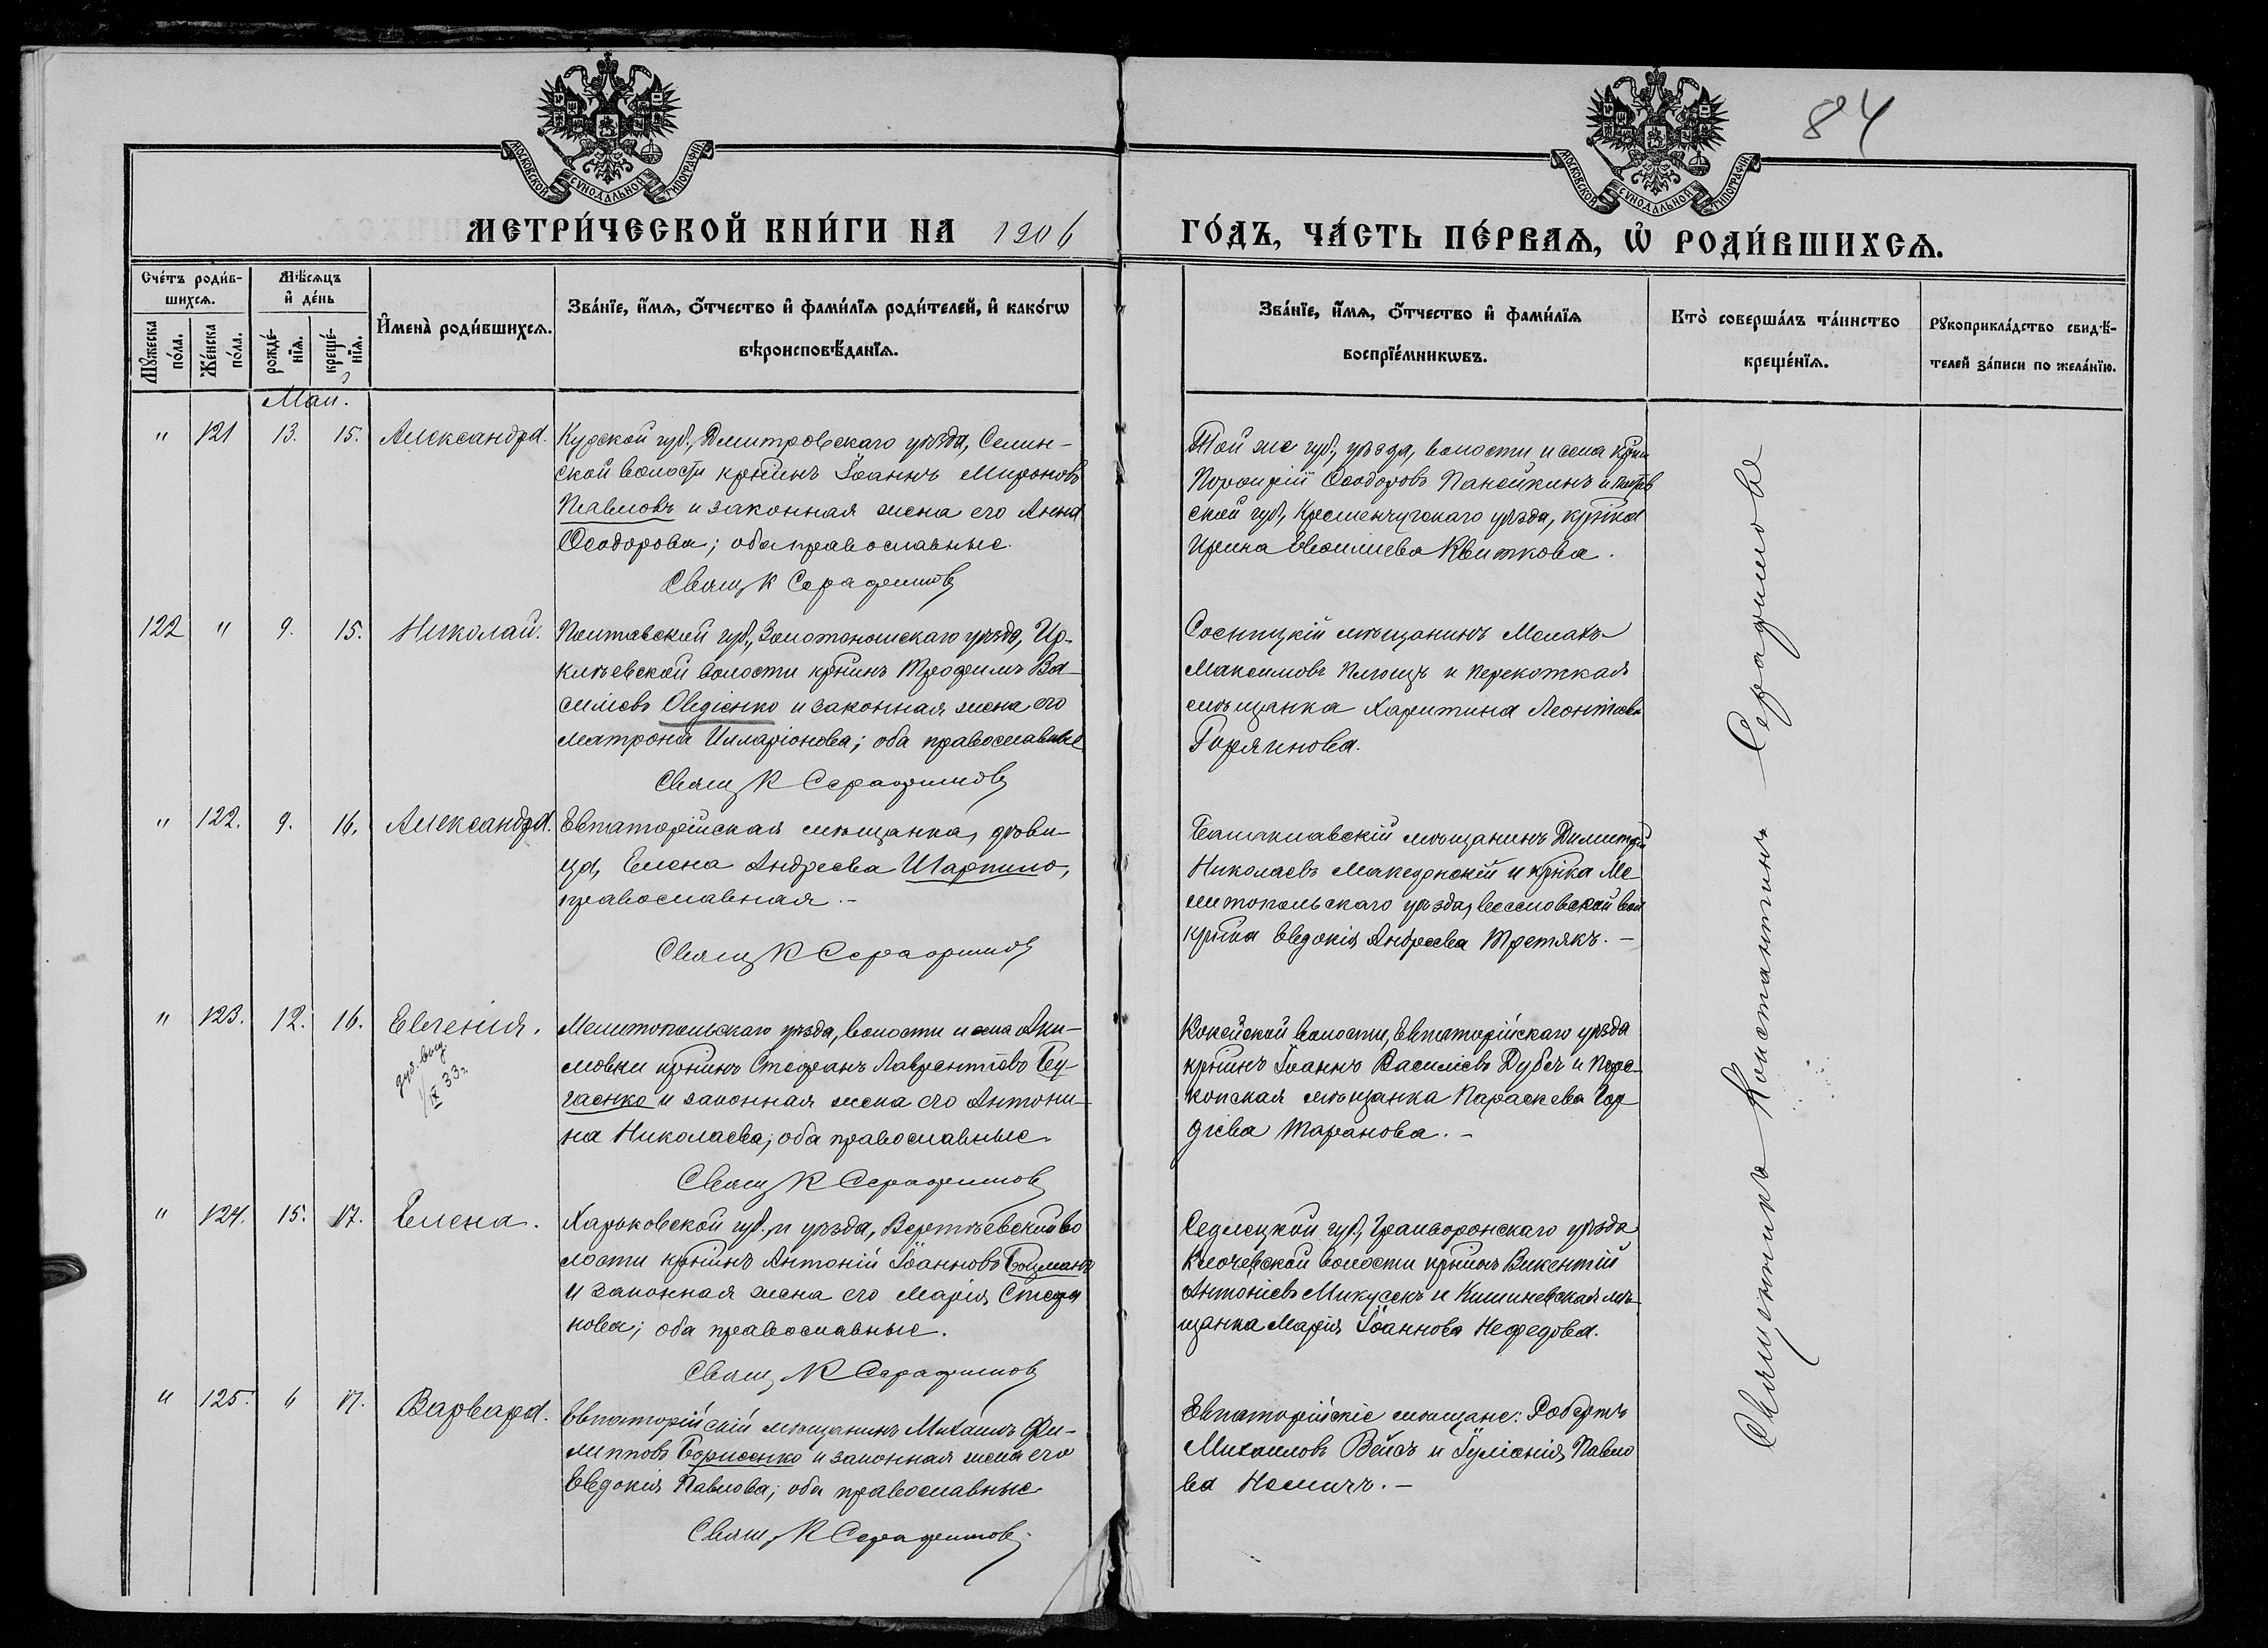 84
МОСКОВСКОЙ СѴНОДАЛЬНОЙ ТИПОГРАФІИ
МОСКОВСКОЙ СѴНОДАЛЬНОЙ ТИПОГРАФІИ
МЕТРИ́ЧЕСКОЙ КНИ́ГИ НА 1906 ГО́ДЪ, ЧА́СТЬ ПЕ́РВАѦ, Ѡ҆ РОДИ́ВШИХСѦ.
Сче́тъ роди́в-
шихсѧ.
Мꙋ́жеска по́ла.
Же́нска по́ла.
Мѣ́сѧцъ
и҆ де́нь
рожде́-
нїѧ.
креще́-
нїѧ.
И҆мена̀ роди́вшихсѧ.
Зва́нїе, и҆́мѧ, ѻ҆́тчество и҆ фами́лїѧ роди́телей, и҆ како́гѡ
вѣроисповѣ́данїѧ.
Зва́нїе, и҆́мѧ, ѻ҆́тчество и҆ фами́лїѧ
воспрїе́мникѡвъ.
Кто̀ соверша́лъ та́инство
креще́нїѧ.
Рꙋкоприкла́дство свидѣ́-
телей за́писи по жела́нїю.
Май.
" 121 13. 15. Александра.
Курской губ., Дмитровскаго уѣзда, Селин-
ской волости крнинъ Іоаннъ Мироновъ
Павловъ и законная жена его Анна
Ѳеодорова; оба православные.
Свящ К Серафимовъ
Той же губ., уѣзда, волости и села крнин
Порфирій Ѳеодоровъ Панойкинъ и Полтав
ской губ., Кременчугскаго уѣзда, крнка
Ирина Василиева Квиткова.
122 " 9. 15. Николай.
Полтавской губ., Золотоношскаго уѣзда, Ир-
клѣевской волости крнинъ Трофимъ Ва-
силіевъ Овдіенко и законная жена его
Матрона Илларіонова; оба православные
Свящ К Серафимовъ
Сосницкій мѣщанинъ
Максимовъ Плющъ и Перекопская
мѣщанка Харитина Леонтіева
Горяинова.
" 122. 9. 16. Александра.
Евпаторійская мѣщанка, дѣви-
ца, Елена Андреева Шарпило,
православная.-
Свящ К Серафимовъ
Балаклавскій мѣщанинъ Димитрій
Николаевъ Македонскій и крнка Ме
литопольскаго уѣзда, Веселовской вол
крнка Евдокія Андреева Третякъ.-
" 123. 12. 16. Евгенія.
IX 33г.
Мелитопольскаго уѣзда, волости и села Аки-
мовки крнинъ Стефанъ Лаврентіевъ Бу-
гаенко и законная жена его Антони-
на Николаева; оба православные.
Свящ К Серафимовъ
волости, Евпаторійскаго уѣзда
крнинъ Іоаннъ Василіевъ Дубъ и Пере-
копская мѣщанка Параскева Гор
діева Таранова.-
" 124. 15. 17. Елена.
Харьковской губ., и уѣзда, Веретѣевской во
лости крнинъ Антоній Іоанновъ Боцманъ
и законная жена его Марія Стефа
нова; оба православные.
Свящ К Серафимовъ
Седлецкой губ., уѣзда
волости крнинъ Викентій
Антоніевъ и Кишиневская мѣ-
щанка Марія Іоаннова Нефедова.
" 125. 6 17. Варвара.
Евпаторійскій мѣщанинъ Михаилъ Фи-
липповъ Борисенко и законная жена его
Евдокія Павлова; оба православные
Свящ К Серафимовъ
Евпаторійскіе мѣщане: Робертъ
Михаиловъ Вейсъ и Іуліанія Павло
ва Немичъ.-
Священникъ Константинъ Серафимовъ